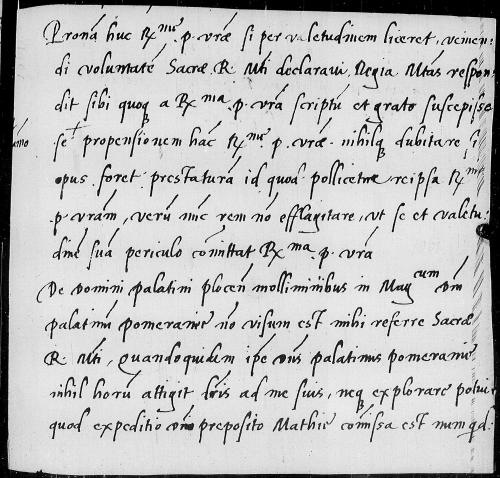 Pronā huc Rx^mę p. vrāe si per valetudinem liceret, venien:
di voluntatē Sacrae R. Mti declaravi, Regia Mtas respon
dit sibi quoq a Rx^ma p. vrā scriptū et grato suscepisse
se propensionem hāc Rx^mę p. vrāe nihilq dubitare, si
opus foret prestaturā id quod pollicetur reipsa Rx^mā
p. vrām, verū nūc rem nō efflagitare, ut se et valetu:
dinē suā periculo cōmittat Rx^ma p. vrā
De domini palatini plocēn molliminibus in Mag^cum Dm̄
palatinū pomeranię nō visum est mihi referre Sacrae
R. Mti, Quandoquidem ip̄e dn̄s palatinus pomeranię
nihil horū attigit lr̄is ad me suis, neq explorare potui
quod expeditio dn̄o preposito Mathię cōmissa est num qd: